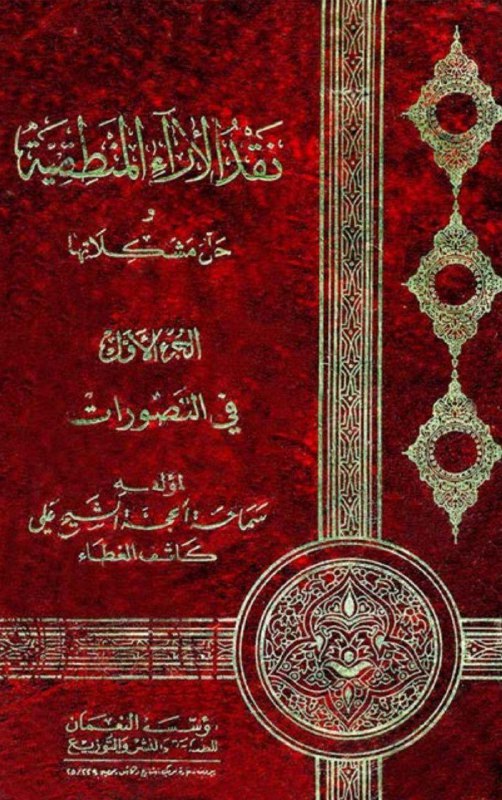 نَقْدُ الْآرَاءِ الْمَنْطِقِيَّة
و
حَلّ مشكلاتها
الجزء الأوّل
في التصورات
لمؤلفه
سماحة الحجة الشيخ علي
كاشف الغطاء
مؤسسة النعمان
للطباعة والنشر والتوزيع